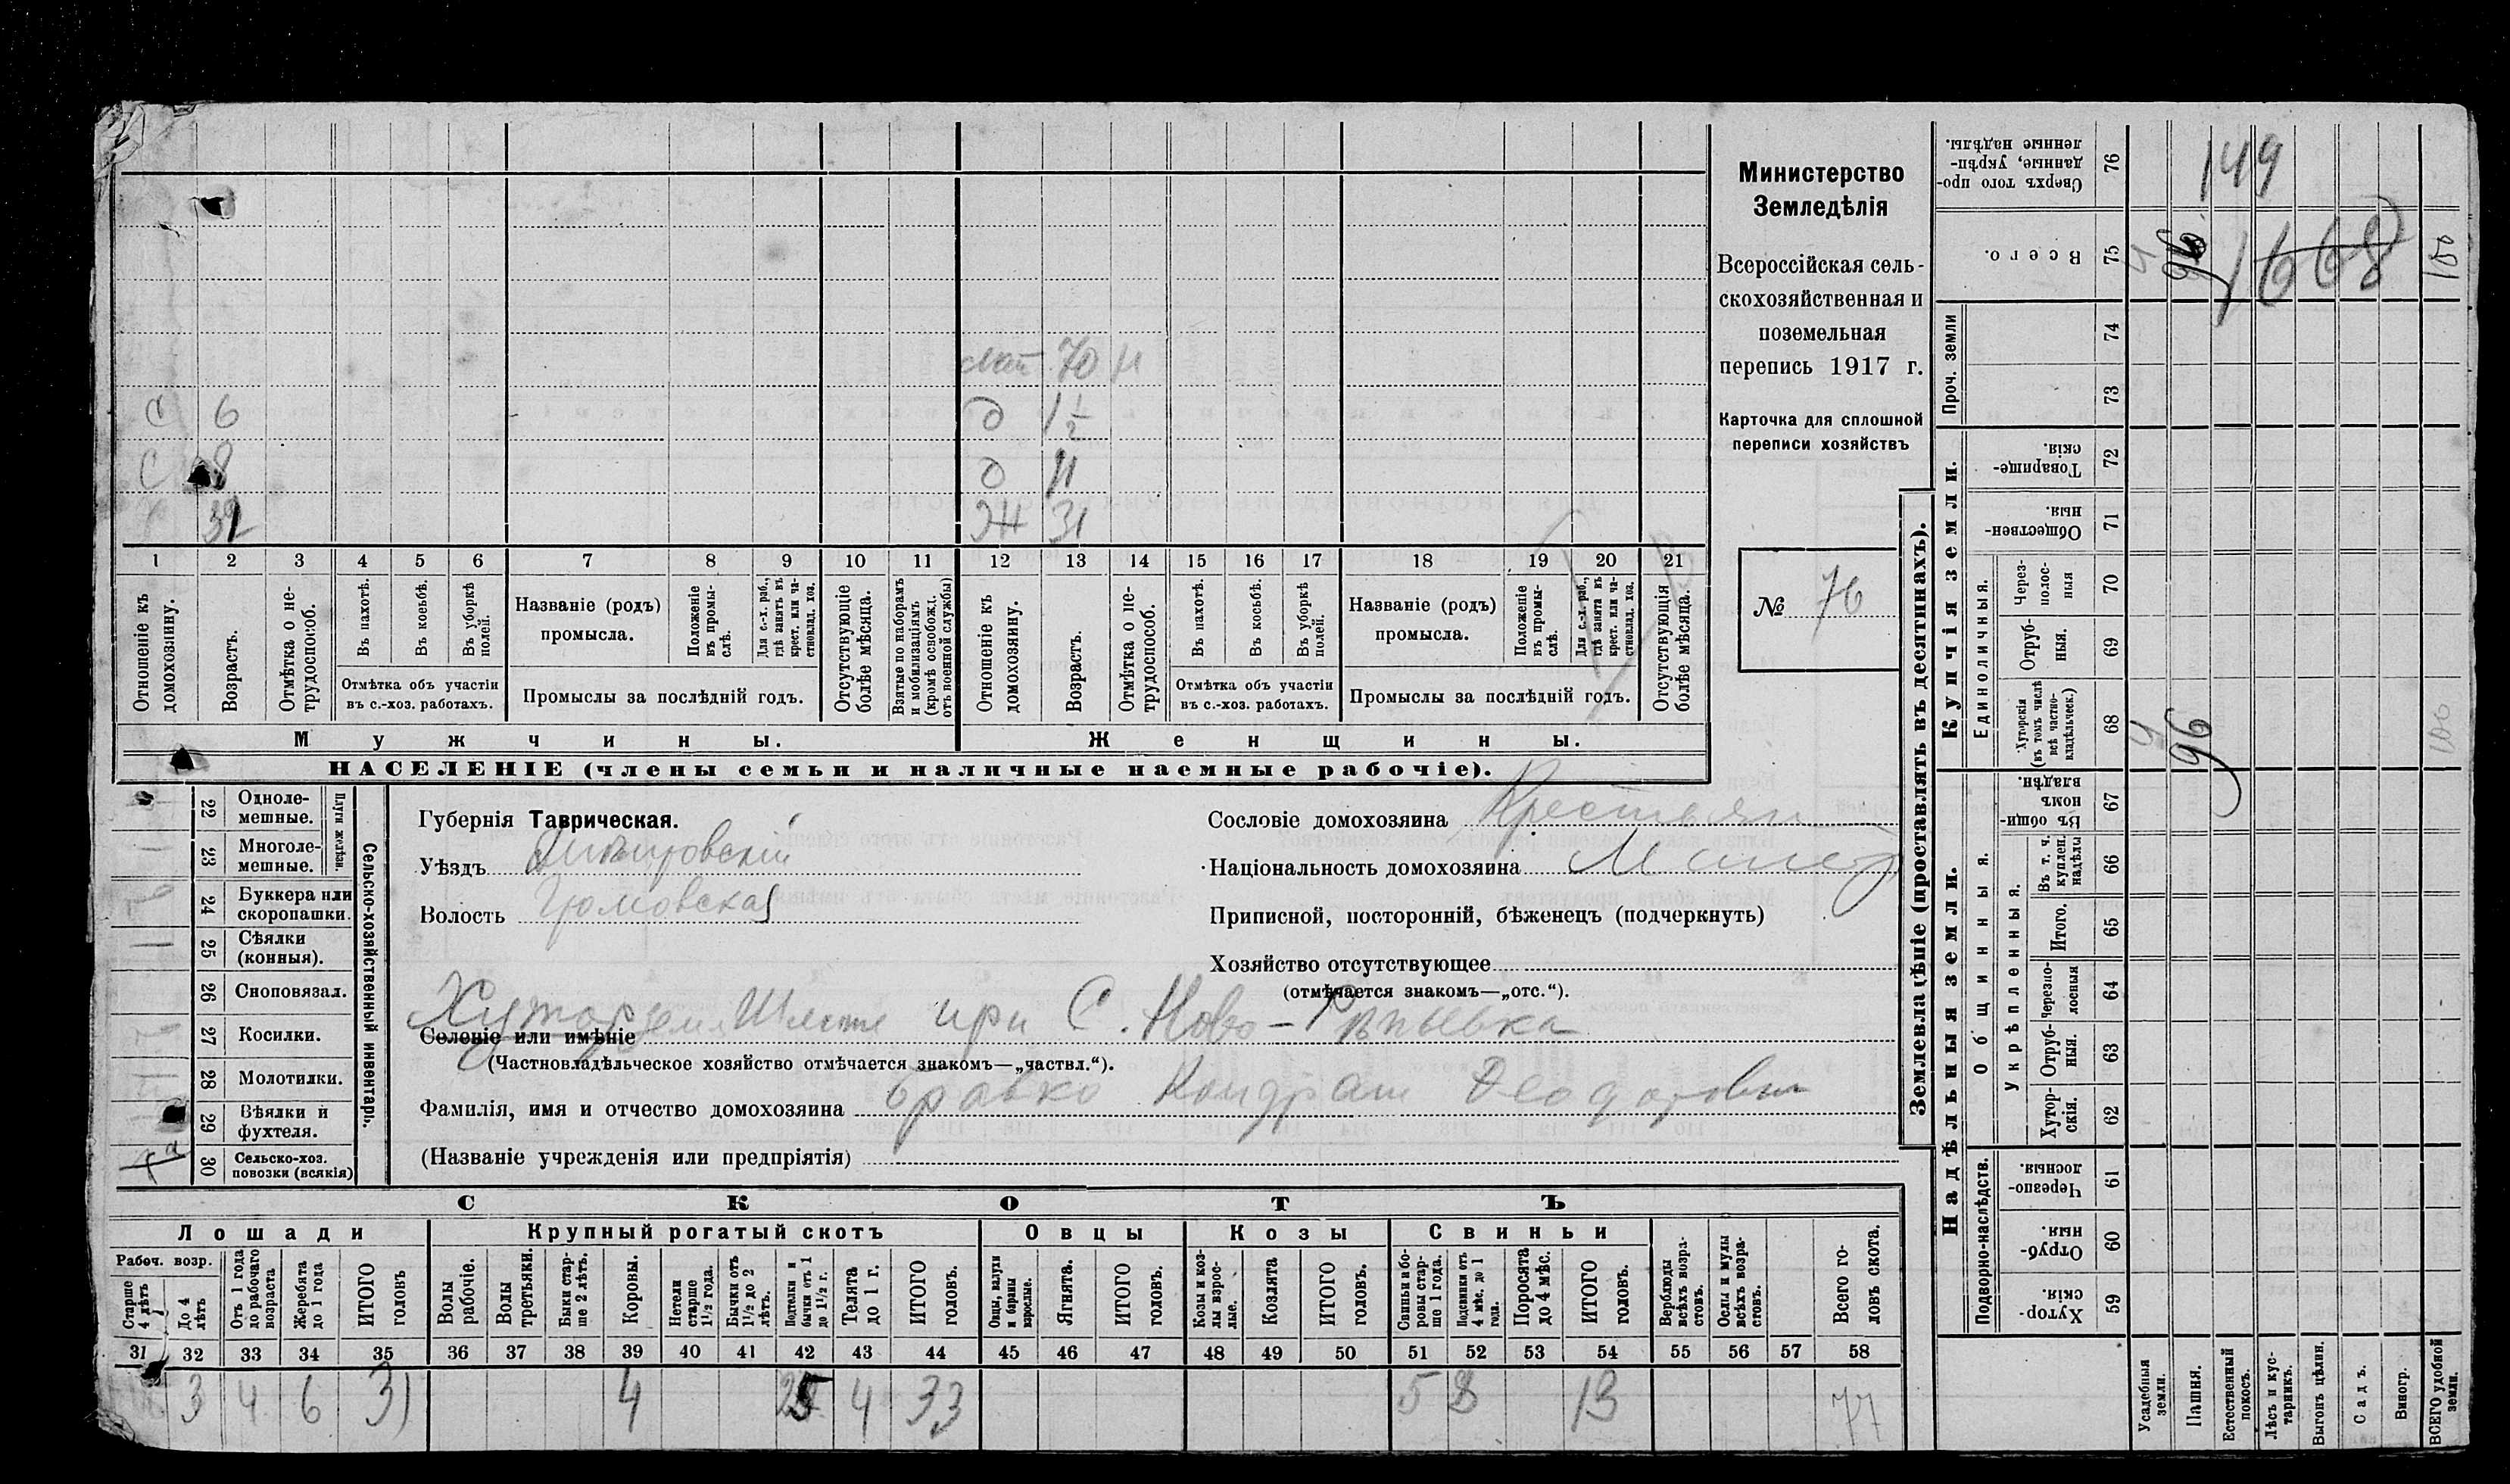 Министерство
Земледѣлія
Всероссійская сель-
скохозяйственная и
поземельная
перепись 1917 г.
Карточка для сплошной
переписи хозяйствъ
№ 76
мат 70 н
с 6 д 1 1/2
с 8 д 11
32 эж 31
1 2 3 4 5 6 7 8 9 10 11 12 13 14 15 16 17 18 19 20 21
Отношеніе къ домохозяину.
Возрастъ.
Отмѣтка о не-трудоспособ.
Въ пахотѣ.
Въ косьбѣ.
Въ уборкѣ полей.
Отмѣтка объ участіи
въ с.-хоз. работахъ.
Названіе (родъ)
промысла.
Положеніе въ промы-слѣ.
Для с.-х. раб., гдѣ занятъ въ крест. или ча-стновлад. хоз.
Промыслы за послѣдній годъ.
Отсутствующіе болѣе мѣсяца.
Взятые по наборамъ и мобилизаціямъ (кромѣ освобожд. отъ военной службы)
Отношеніе къ домохозяину.
Возрастъ.
Отмѣтка о не-трудоспособ.
Въ пахотѣ.
Въ косьбѣ.
Въ уборкѣ полей.
Отмѣтка объ участіи
въ с.-хоз. работахъ.
Названіе (родъ)
промысла.
Положеніе въ промы-слѣ.
Для с.-х. раб., гдѣ занята въ крест. или ча-стновлад. хоз.
Промыслы за послѣдній годъ.
Отсутствующія болѣе мѣсяца.
Мужчины. Женщины.
НАСЕЛЕНІЕ (члены семьи и наличные наемные рабочіе).
Сельско-хозяйственный инвентарь.
Плуги желѣзн.
22 Одноле-мешные.
23 Многоле-мешные.
24 Буккера или скоропашки.
25 Сѣялки (конныя).
26 Сноповязал.
27 Косилки.
28 Молотилки.
29 Вѣялки и фухтеля.
30 Сельско-хоз. повозки (всякія)
Губернія Таврическая.
Уѣздъ Днѣпровскій
Волость Громовская
Сословіе домохозяина Крестьян
Національность домохозяина
Приписной, посторонній, бѣженецъ (подчеркнуть)
Хозяйство отсутствующее
(отмѣчается знакомъ—„отс.“).
Селеніе или имѣніе при С. Ново-
(Частновладѣльческое хозяйство отмѣчается знакомъ—„частвл.“).
Фамилія, имя и отчество домохозяина Бравко Кондрат
(Названіе учрежденія или предпріятія)
СКОТЪ
Лошади Крупный рогатый скотъ Овцы Козы Свиньи
Рабоч. возр.
Старше 4 лѣтъ
До 4 лѣтъ
Отъ 1 года до рабочаго возраста
Жеребята до 1 года
ИТОГО головъ
Волы рабочіе.
Волы третьяки.
Быки стар-ше 2 лѣтъ.
Коровы.
Нетели старше 1½ года.
Бычки отъ 1½ до 2 лѣтъ.
Подтелки и бычки отъ 1 до 1½ г.
Телята до 1 г.
ИТОГО головъ.
Овцы, валухи и бараны взрослые.
Ягнята.
ИТОГО головъ.
Козы и коз-лы взрос-лые.
Козлята
ИТОГО головъ.
Свиньи и бо-ровы стар-ше 1 года.
Подсвинки отъ 4 мѣс. до 1 года.
Поросята до 4 мѣс.
ИТОГО головъ.
Верблюды всѣхъ возра-стовъ.
Ослы и мулы всѣхъ возра-стовъ.
Всего го-ловъ скота.
31 32 33 34 35 36 37 38 39 40 41 42 43 44 45 46 47 48 49 50 51 52 53 54 55 56 57 58
3 4 6 31 4 4 33 5 8 13 77
Землевладѣніе (проставлять въ десятинахъ).
Надѣльныя земли. Купчія земли. Проч. земли
Подворно-наслѣдств.
Общинныя.
Укрѣпленныя.
Единоличныя.
76 Сверхъ того про-данные, укрѣп-ленные надѣлы. 149
75 Всего. 4 96 1668 100
74
73
72 Товарище-скія.
71 Обществен-ныя.
70 Через-полос-ныя
69 Отруб-ныя.
68 Хуторскія (въ томъ числѣ всѣ частно-владѣльческ.) 4 96 100
67 Въ общи-номъ владѣн.
66 Въ т. ч. куплен. надѣлы
65 Итого.
64 Черезпо-лосныя
63 Отруб-ныя.
62 Хутор-скія.
61 Черезпо-лосныя.
60 Отруб-ныя.
59 Хутор-скія.
Усадебныя земли.
Пашня.
Естественный покосъ.
Лѣсъ и кус-тарникъ.
Выгонъ цѣлин.
Садъ.
Виногр.
ВСЕГО удобной земли.